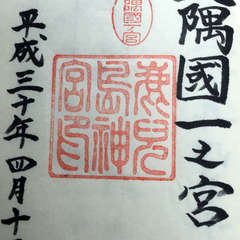 隅國一之宮
隅國一宮
鹿兒
島神
宮印
平成三十年四月十